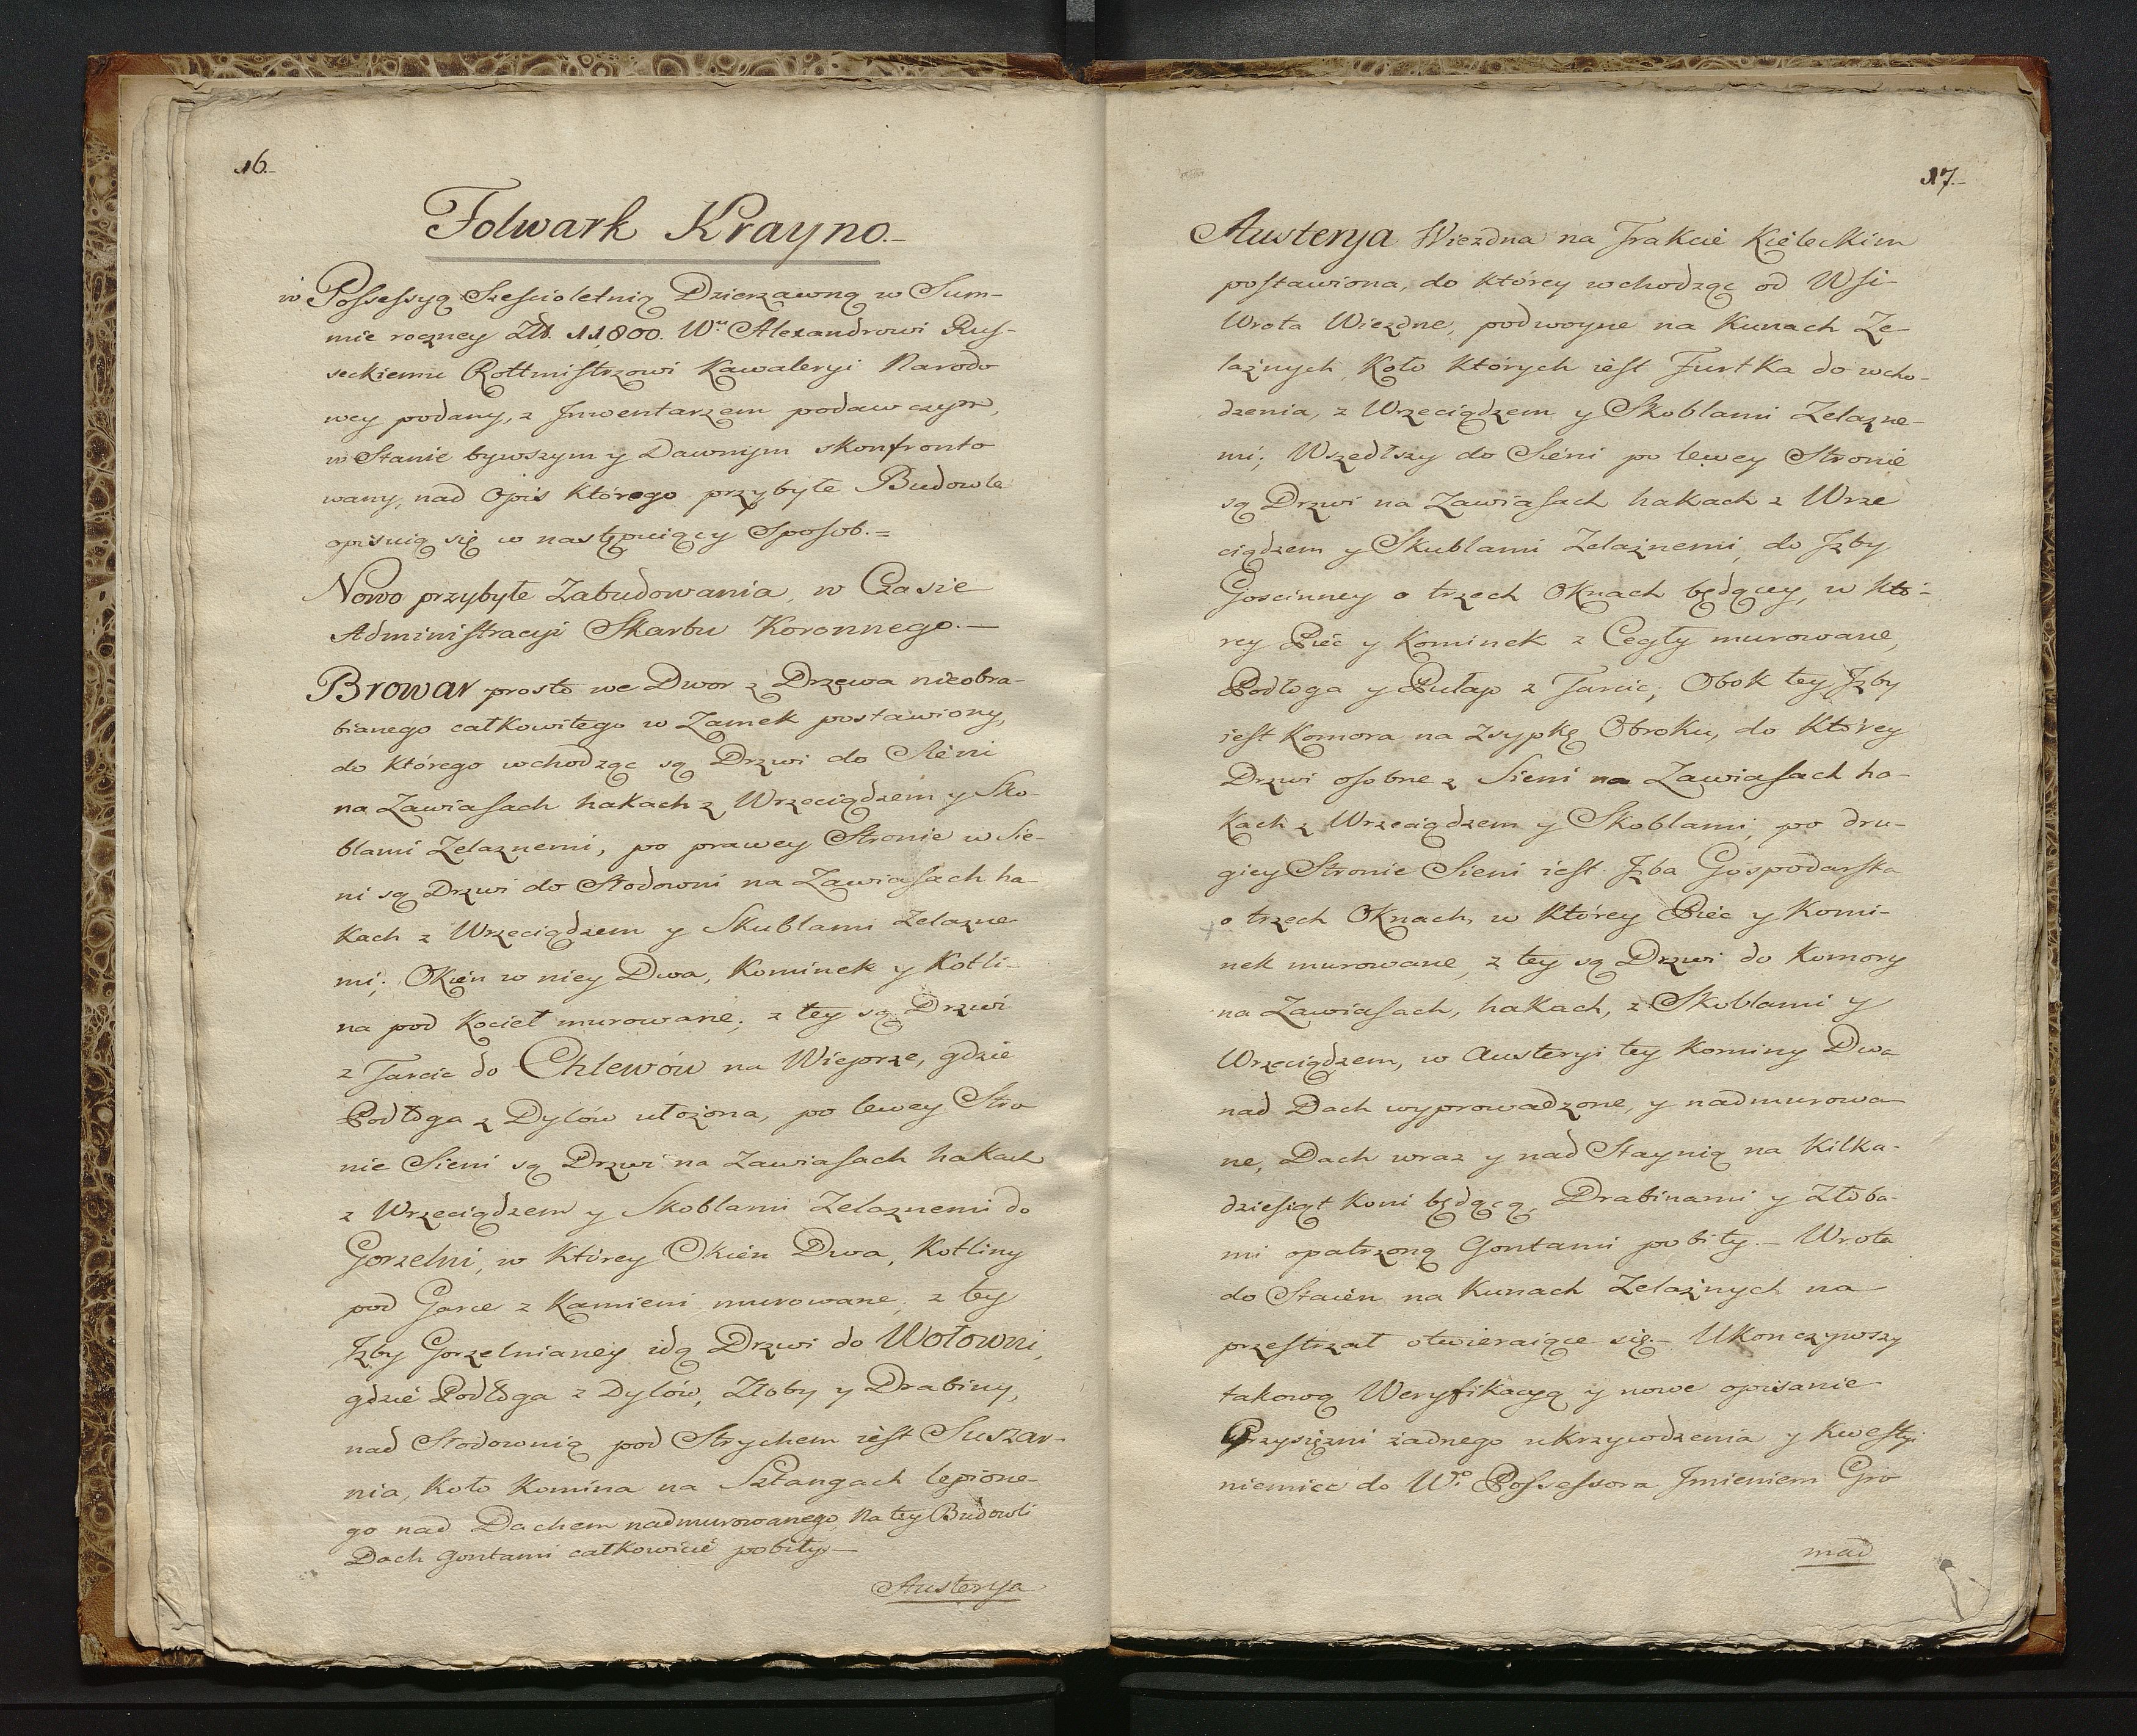 16.
Folwark Krayno.
w Possessyą Sześcioletnią Dzierzawną w Sum-
mie roczney Złł. 11,800. Wu Alexandrowi Rus-
seckiemu Rottmistrzowi Kawaleryi Narodo
wey podany, z Jnwentarzem podawczym,
w Stanie bywszym y Dawnym skonfronto
wany, nad Opis którego przybyłe Budowle
opisuią się w następuiący Sposob.=
Nowo przybyłe Zabudowania, w Czasie
Administracyi Skarbu Koronnego.—
Browar prosto we Dwor z Drzewa nieobra-
bianego całkowitego w Zamek postawiony,
do którego wchodząc są Drzwi do Sieni
na Zawiasach hakach z Wrzeciądzem y Sko-
blami Zelaznemi, po prawey Stronie w Sie-
ni są Drzwi do Słodowni na Zawiasach ha-
kach z Wrzeciądzem y Skublami Zelazne
mi; Okien w niey Dwa, Kominek y Kotli-
na pod Kocieł murowane; z tey są Drzwi
z Tarcic do Chlewów na Wieprze, gdzie
Podłoga z Dylów ułożona, po lewey Stro
nie Sieni są Drzwi na Zawiasach hakach
z Wrzeciądzem y Skoblami Zelaznemi do
Gorzelni, w którey Okien Dwa, Kotliny
pod Garce z Kamieni murowane; z tey
Jzby Gorzelnianey idą Drzwi do Wołowni,
gdzie Podłoga z Dylów, Złoby y Drabiny,
nad Słodownią pod Strychem iest Suszar-
nia, Koło Komina na Sztangach lepione-
go nad Dachem nadmurowanego, Na tey Budowli
Dach gontami całkowicie pobity.—
Austerya
17.
Austerya Wiezdna na Trakcie Kieleckim
postawiona, do którey wchodząc od Wsi
Wrota Wiezdne, podwoyne na Kunach Ze-
laznych, Koło których iest Furtka do wcho-
dzenia, z Wrzeciądzem y Skoblami Zelazne-
mi; Wszedłszy do Sieni po lewey Stronie
są Drzwi na Zawiasach hakach z Wrze
ciądzem y Skublami Zelaznemi, do Jzby
Goscinney o trzech Oknach będącey, w któ-
rey Piec y Kominek z Cegły murowane,
Podłoga y Pułap z Tarcic; Obok tey Jzby
iest Komora na zsypkę Obroku, do którey
Drzwi osobne z Sieni na Zawiasach ha-
kach z Wrzeciądzem y Skoblami, po dru-
giey Stronie Sieni iest Jzba Gospodarska
o trzech Oknach, w którey Piec y Komi-
nek murowane, z tey są Drzwi do Komory
na Zawiasach, hakach, z Skoblami y
Wrzeciądzem, w Austeryi tey Kominy Dwa
nad Dach wyprowadzone, y nadmurowa
ne, Dach wraz y nad Staynią na Kilka-
dziesiąt Koni będącą, Drabinami y Złoba-
mi opatrzoną Gontami pobity.— Wrota
do Staien na Kunach Zelaznych na
przestrzał otwieraiące się.— Ukonczywszy
takową Weryfikacyą y nowe opisanie
Przysięzni żadnego ukrzywdzenia y Kwestyi
niemiec do Wo Possessora Jmieniem Gro
mad